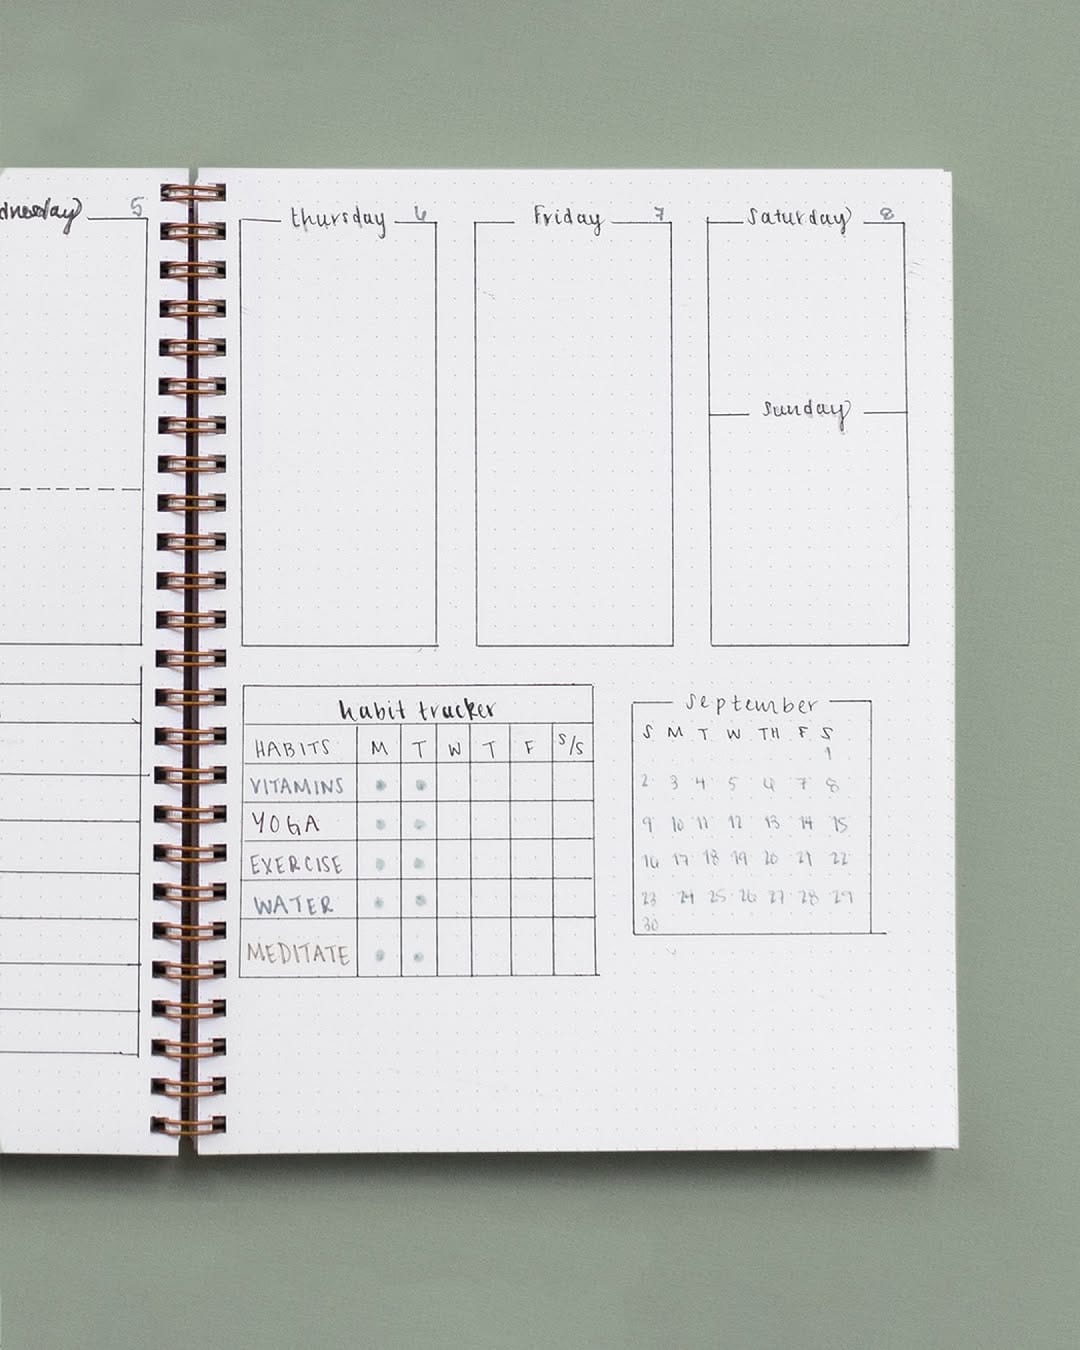 dnesday 5
thursday 6
Friday 7
saturday 8
sunday
habit tracker
HABITS M T W T F S/S
VITAMINS
YOGA
EXERCISE
WATER
MEDITATE
september
S M T W TH F S
1
2 3 4 5 6 7 8
9 10 11 12 13 14 15
16 17 18 19 20 21 22
23 24 25 26 27 28 29
30